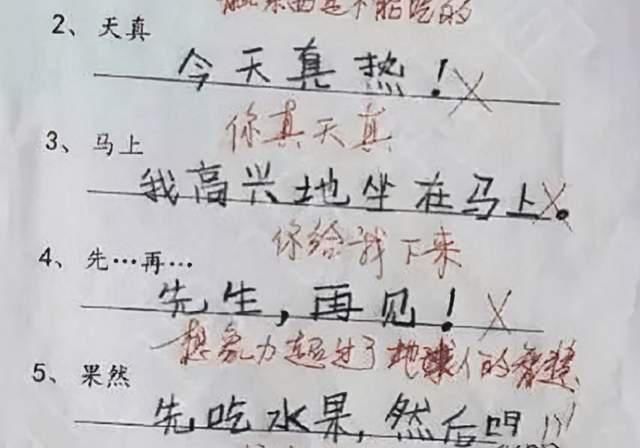 东西是不能吃的
2、天真
今天真热！
你真天真
3、马上
我高兴地坐在马上。
你给我下来
4、先…再…
先生，再见！
想象力超过了地球人的智慧
5、果然
先吃水果，然后喝